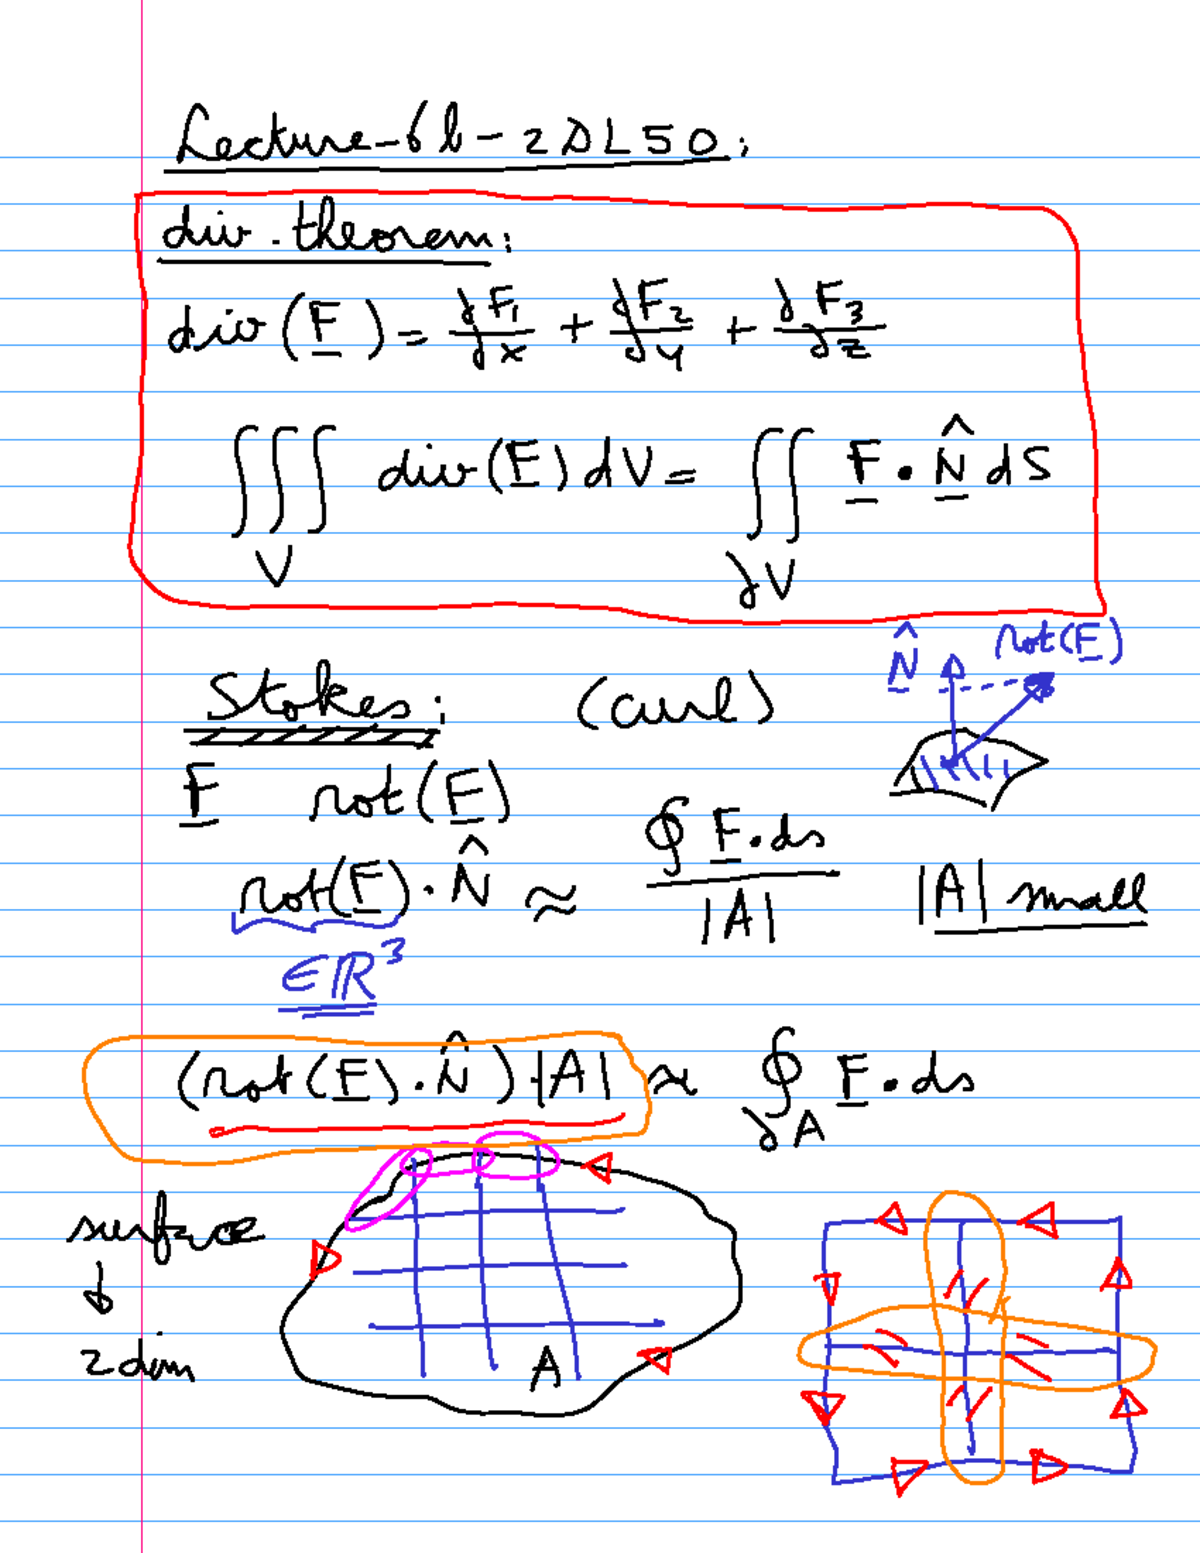 Lecture-6b-2DL50:
div. theorem:
div(F) = ∂F₁/∂x + ∂F₂/∂y + ∂F₃/∂z
∭_V div(F) dV = ∬_∂V F · N̂ dS
N̂ rot(F)
Stokes: (curl)
F rot(F)
rot(F) · N̂ ≈ ∮ F · ds / |A| |A| small
∈ ℝ³
(rot(F) · N̂) · |A| ≈ ∮_∂A F · ds
surface
↓
2 dim
A